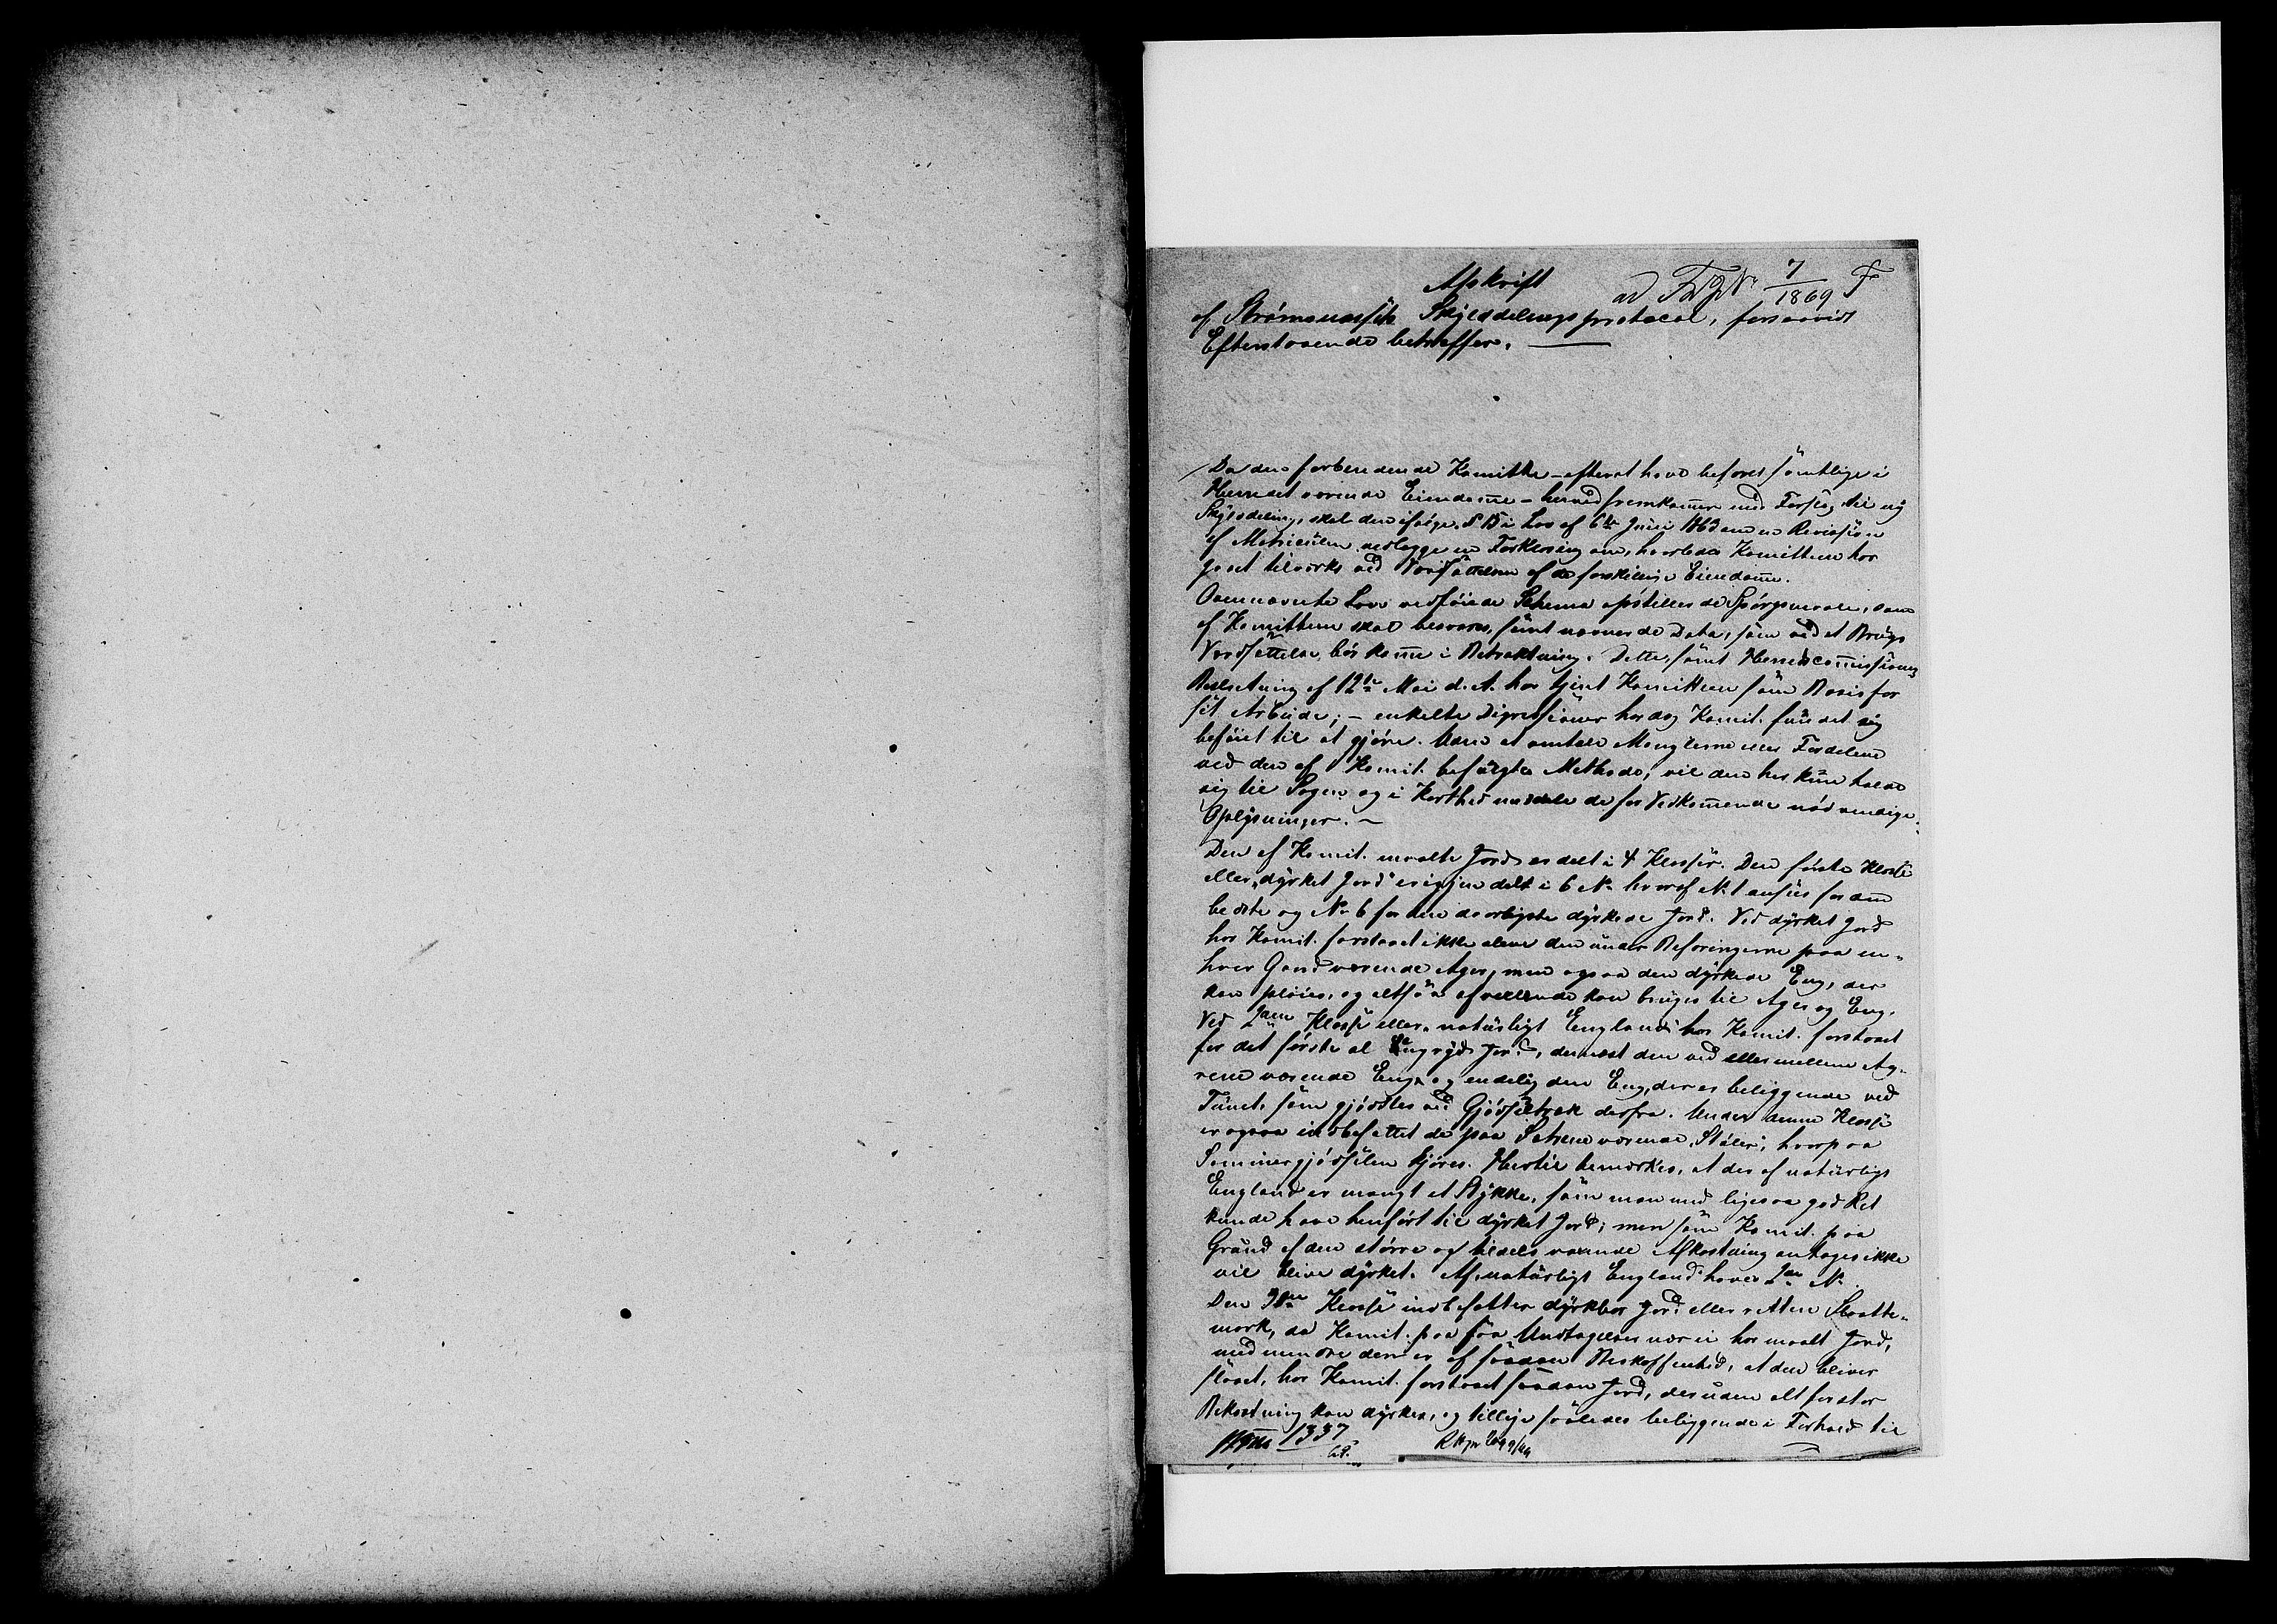 Afskrift
ad 7/1869 F
af Skylddelingsprotocol, forsaavidt
Efterstaaende betræffer.
Da den forberedende Komitte – efterat have befaret samtlige i
Herredet værende Eiendomme – herved fremkommer med Forslag til ny
Skylddeling, skal den ifølge § 15 i Lov af 6te Juni 1863 om en Revision
af Matriculen vedlægge en Forklaring om, hvorledes Komitteen har
gaaet tilværks ved Værdsættelsen af de forskjellige Eiendomme.
Ovennævnte Lovs vedføiede Schema opstiller de Spørgsmaale, som
af Komitteen skal besvares, samt nævner de Data, som ved et Brugs
Værdsættelse bør komme i Betraktning. Dette, samt Herredscommissionens
Beslutning af 12te Mai d. A. har tjent Komitteen som Basis for
sit Arbeide; – enkelte Digressioner har dog Komit. fundet sig
beføiet til at gjøre. Uden at omtale Manglerne eller Fordelene
ved den af Komit. befulgte Methode, vil den her kun holde
sig til Sagen og i Korthed meddele de for Vedkommende nødvendige
Oplysninger. –
Den af Komit. maalte Jord er delt i 4 Klasser. Den første Klasse
eller „dyrket Jord" er igjen delt i 6 No hvoraf No 1 ansees for den
bedste og No 6 for den daarligste dyrkede Jord. Ved dyrket Jord
har Komit. forstaaet ikke alene den under Befaringerne paa en-
hver Gaard værende Ager, men ogsaa den dyrkede Eng, der
kan pløies, og altsaa afvexlende kan bruges til Ager og Eng.
Ved 2den Klasse eller „naturligt England" har Komit. forstaaet
for det første al Jord, dernæst den ved eller mellem Ag-
rene værende Eng, og endelig den Eng, der er beliggende ved
Tunet, som gjødsles ved Gjødseltræk derfra. Under denne Klasse
er ogsaa indbefattet de paa Sætrene værende „Støler", hvorpaa
Sommergjødselen kjøres. Hertil bemærkes, at der af naturligt
England er mangt et Stykke, som man med ligesaa god Ret
kunde have henført til dyrket Jord; men som Komit. paa
Grund af den større og tildels værende Afkastning antager ikke
vil blive dyrket. Af naturligt England haves No
Den 3die Klasse indbefatter dyrkbar Jord eller rettere Slaatte-
mark, da Komit. paa faa Undtagelser nær ei har maalt Jord,
med mindre den er af saadan Beskaffenhed, at den bliver
slaaet, har Komit. forstaaet saadan Jord, der uden altfor stor
Bekostning kan dyrkes, og tillige saaledes beliggende i Forhold til
1337